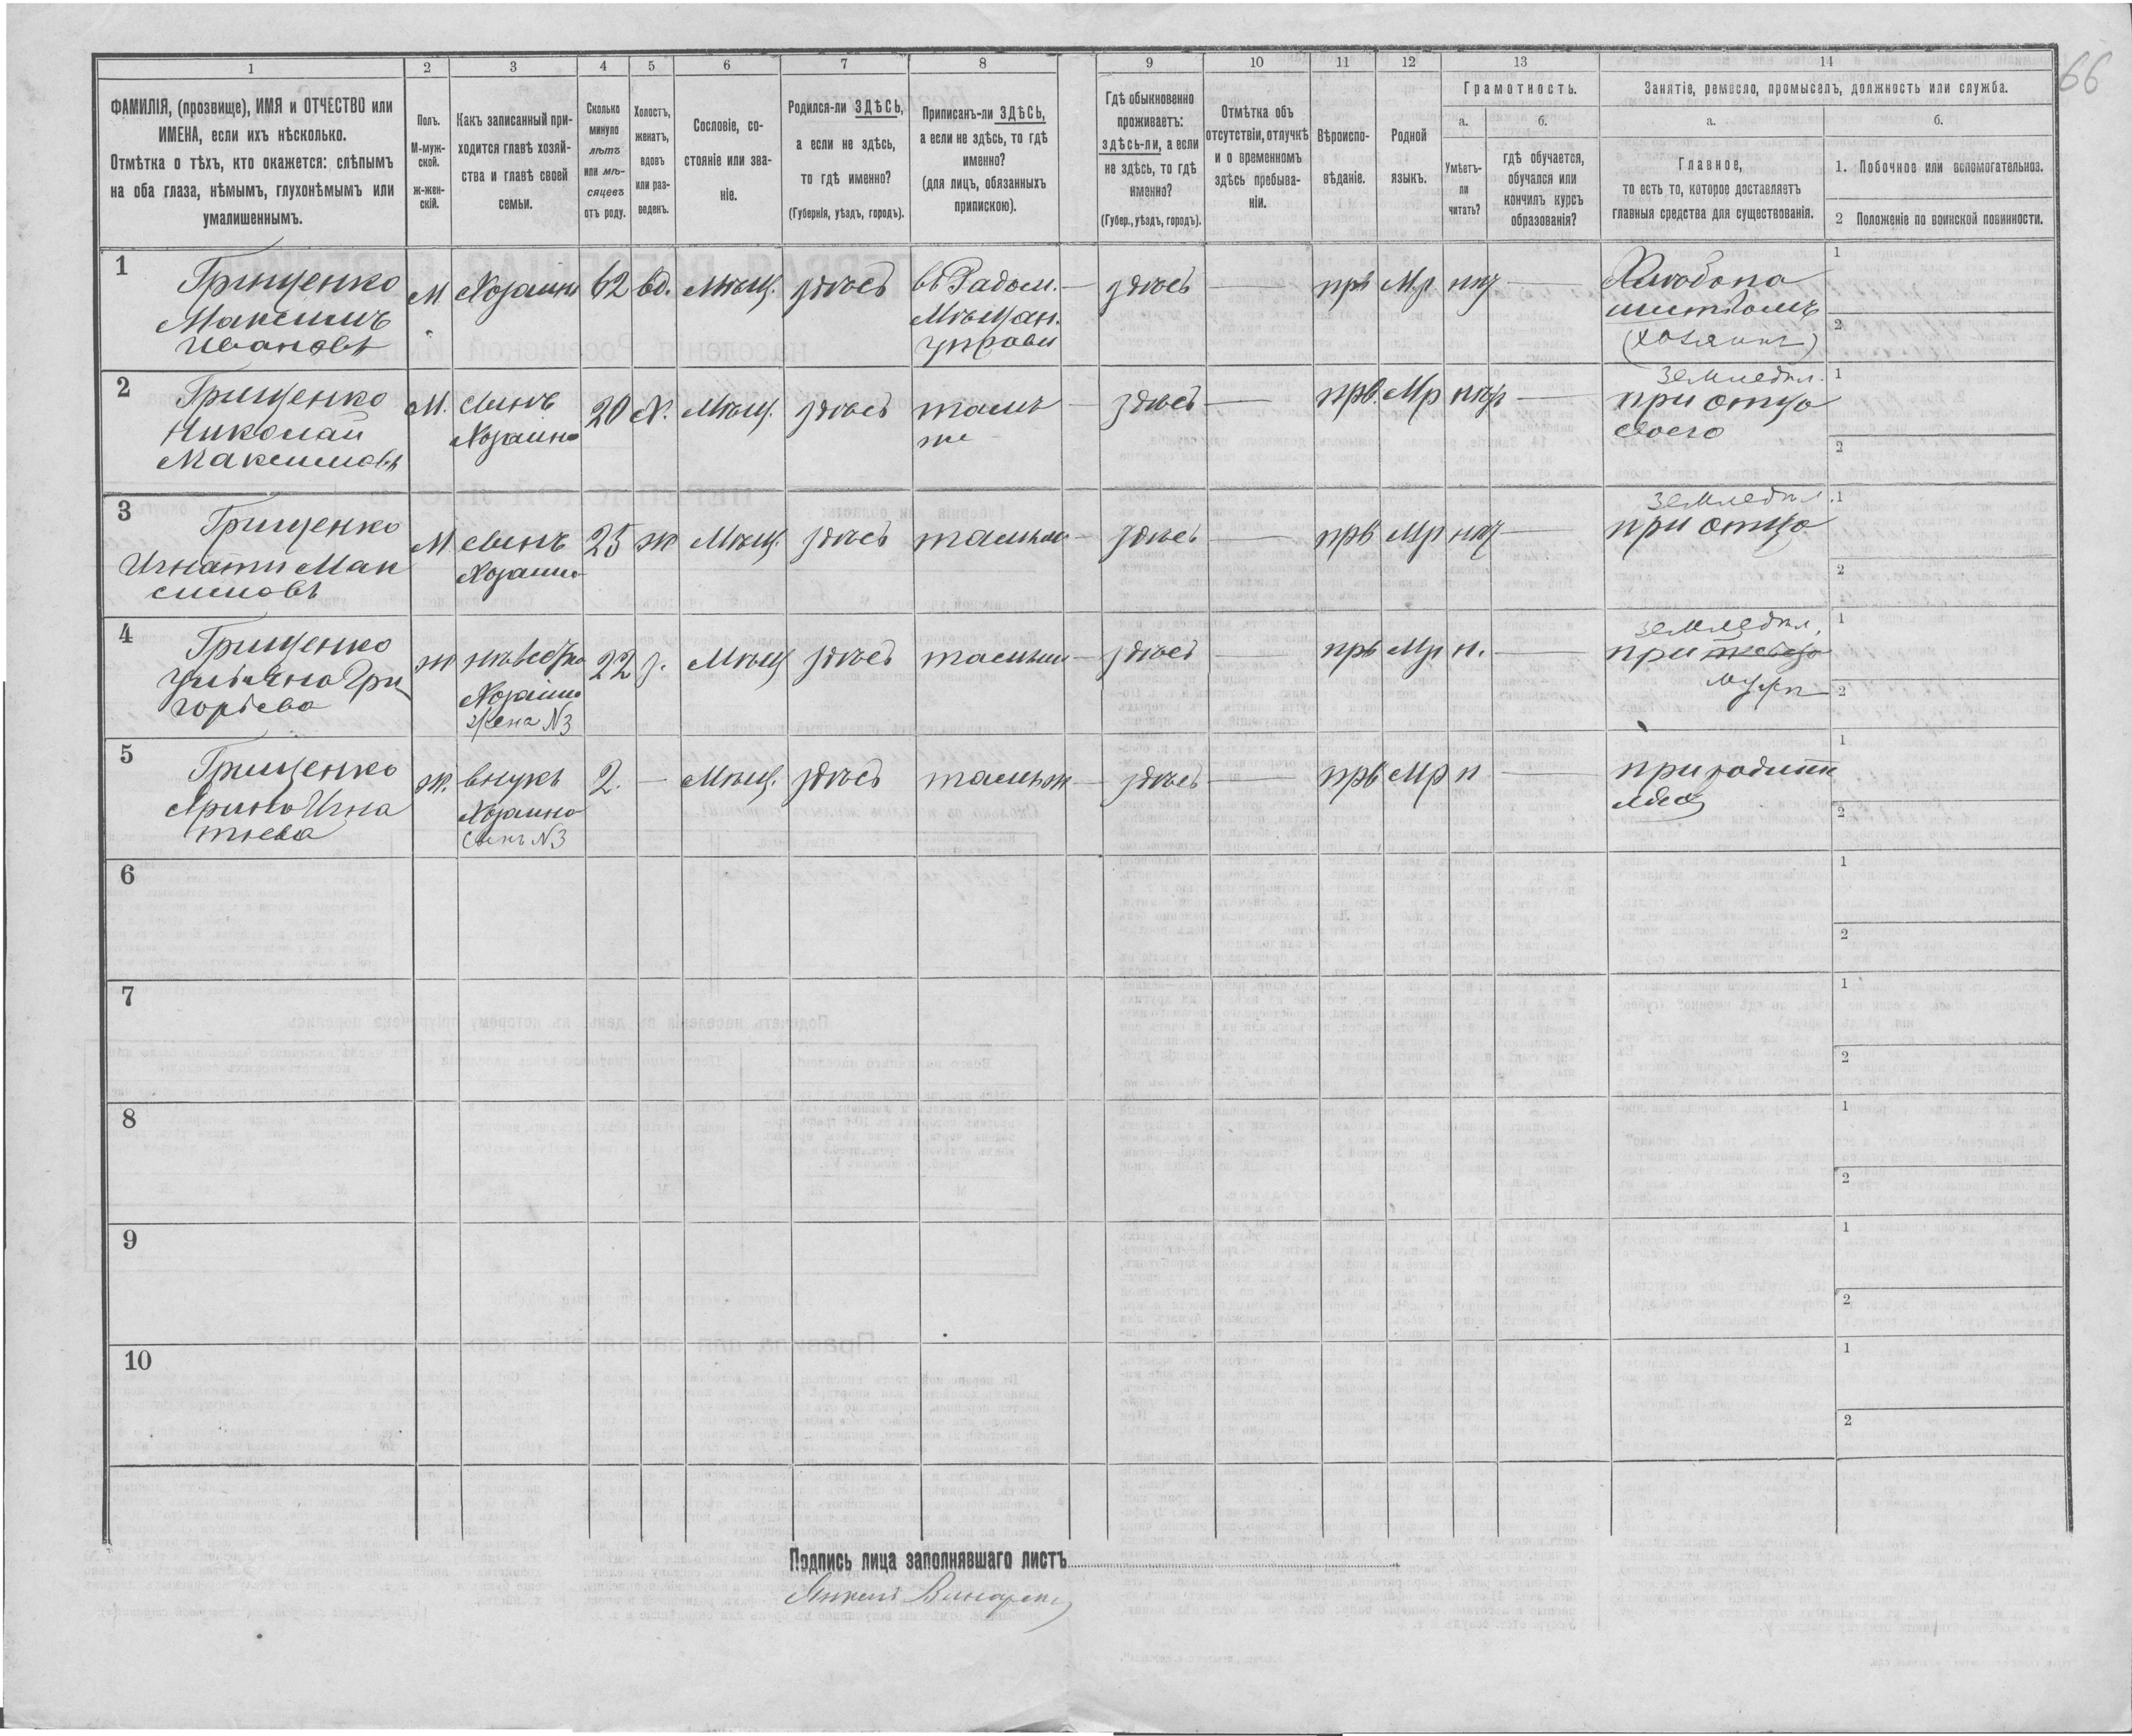 66
1 2 3 4 5 6 7 8 9 10 11 12 13 14
ФАМИЛІЯ, (прозвище), ИМЯ и ОТЧЕСТВО или
ИМЕНА, если ихъ нѣсколько.
Отмѣтка о тѣхъ, кто окажется: слѣпымъ
на оба глаза, нѣмымъ, глухонѣмымъ или
умалишеннымъ.
Полъ.
М-муж-
ской.
ж-жен-
скій.
Какъ записанный при-
ходится главѣ хозяй-
ства и главѣ своей
семьи.
Сколько
минуло
лѣтъ
или мѣ-
сяцевъ
отъ роду.
Холостъ,
женатъ,
вдовъ
или раз-
веденъ.
Сословіе, со-
стояніе или зва-
ніе.
Родился-ли ЗДѢСЬ,
а если не здѣсь,
то гдѣ именно?
(Губернія, уѣздъ, городъ).
Приписанъ-ли ЗДѢСЬ,
а если не здѣсь, то гдѣ
именно?
(для лицъ, обязанныхъ
припискою).
Гдѣ обыкновенно
проживаетъ:
здѣсь-ли, а если
не здѣсь, то гдѣ
именно?
(Губер., уѣздъ, городъ).
Отмѣтка объ
отсутствіи, отлучкѣ
и о временномъ
здѣсь пребыва-
ніи.
Вѣроиспо-
вѣданіе.
Родной
языкъ.
Грамотность.
а.
Умѣетъ-
ли
читать?
б.
гдѣ обучается,
обучался или
кончилъ курсъ
образованія?
Занятіе, ремесло, промыселъ, должность или служба.
а.
Главное,
то есть то, которое доставляетъ
главныя средства для существованія.
б.
1. Побочное или вспомогательное.
2 Положеніе по воинской повинности.
1
Грищенко
Максимъ
Ивановъ
М Хозяинъ 62 вд. Мѣщ. здѣсь
въ Радом.
Мѣщан.
управи
здѣсь
прв Мр
Хлѣбопа
шествомъ
(хозяинъ)
1
2
2
Грищенко
Николай
Максимовъ
М.
сынъ
Хозяина
20 Х. Мѣщ. здѣсь
тамъ
же
здѣсь
прв. Мр
земледѣл.
при отцѣ
своего
1
2
3
Грищенко
Игнатій Мак
симовъ
М
сынъ
Хозяина
25 ж Мѣщ. здѣсь тамъже здѣсь
прв Мр
земледѣл.
при отцѣ
1
2
4
Грищенко
Ульяна Гри
горьева
ж
невѣстка
Хозяина
жена N3
22 з. Мѣщ здѣсь тамъже здѣсь
прв Мр н.
земледѣл.
при
мужѣ
1
2
5
Грищенко
Ярина Игна
тьева
ж.
внукъ
Хозяина
сынъ N3
2. — Мѣщ. здѣсь тамъже здѣсь
прв Мр н
при родите
ляхъ
1
2
6
1
2
7
1
2
8
1
2
9
1
2
10
1
2
Подпись лица заполнявшаго листъ